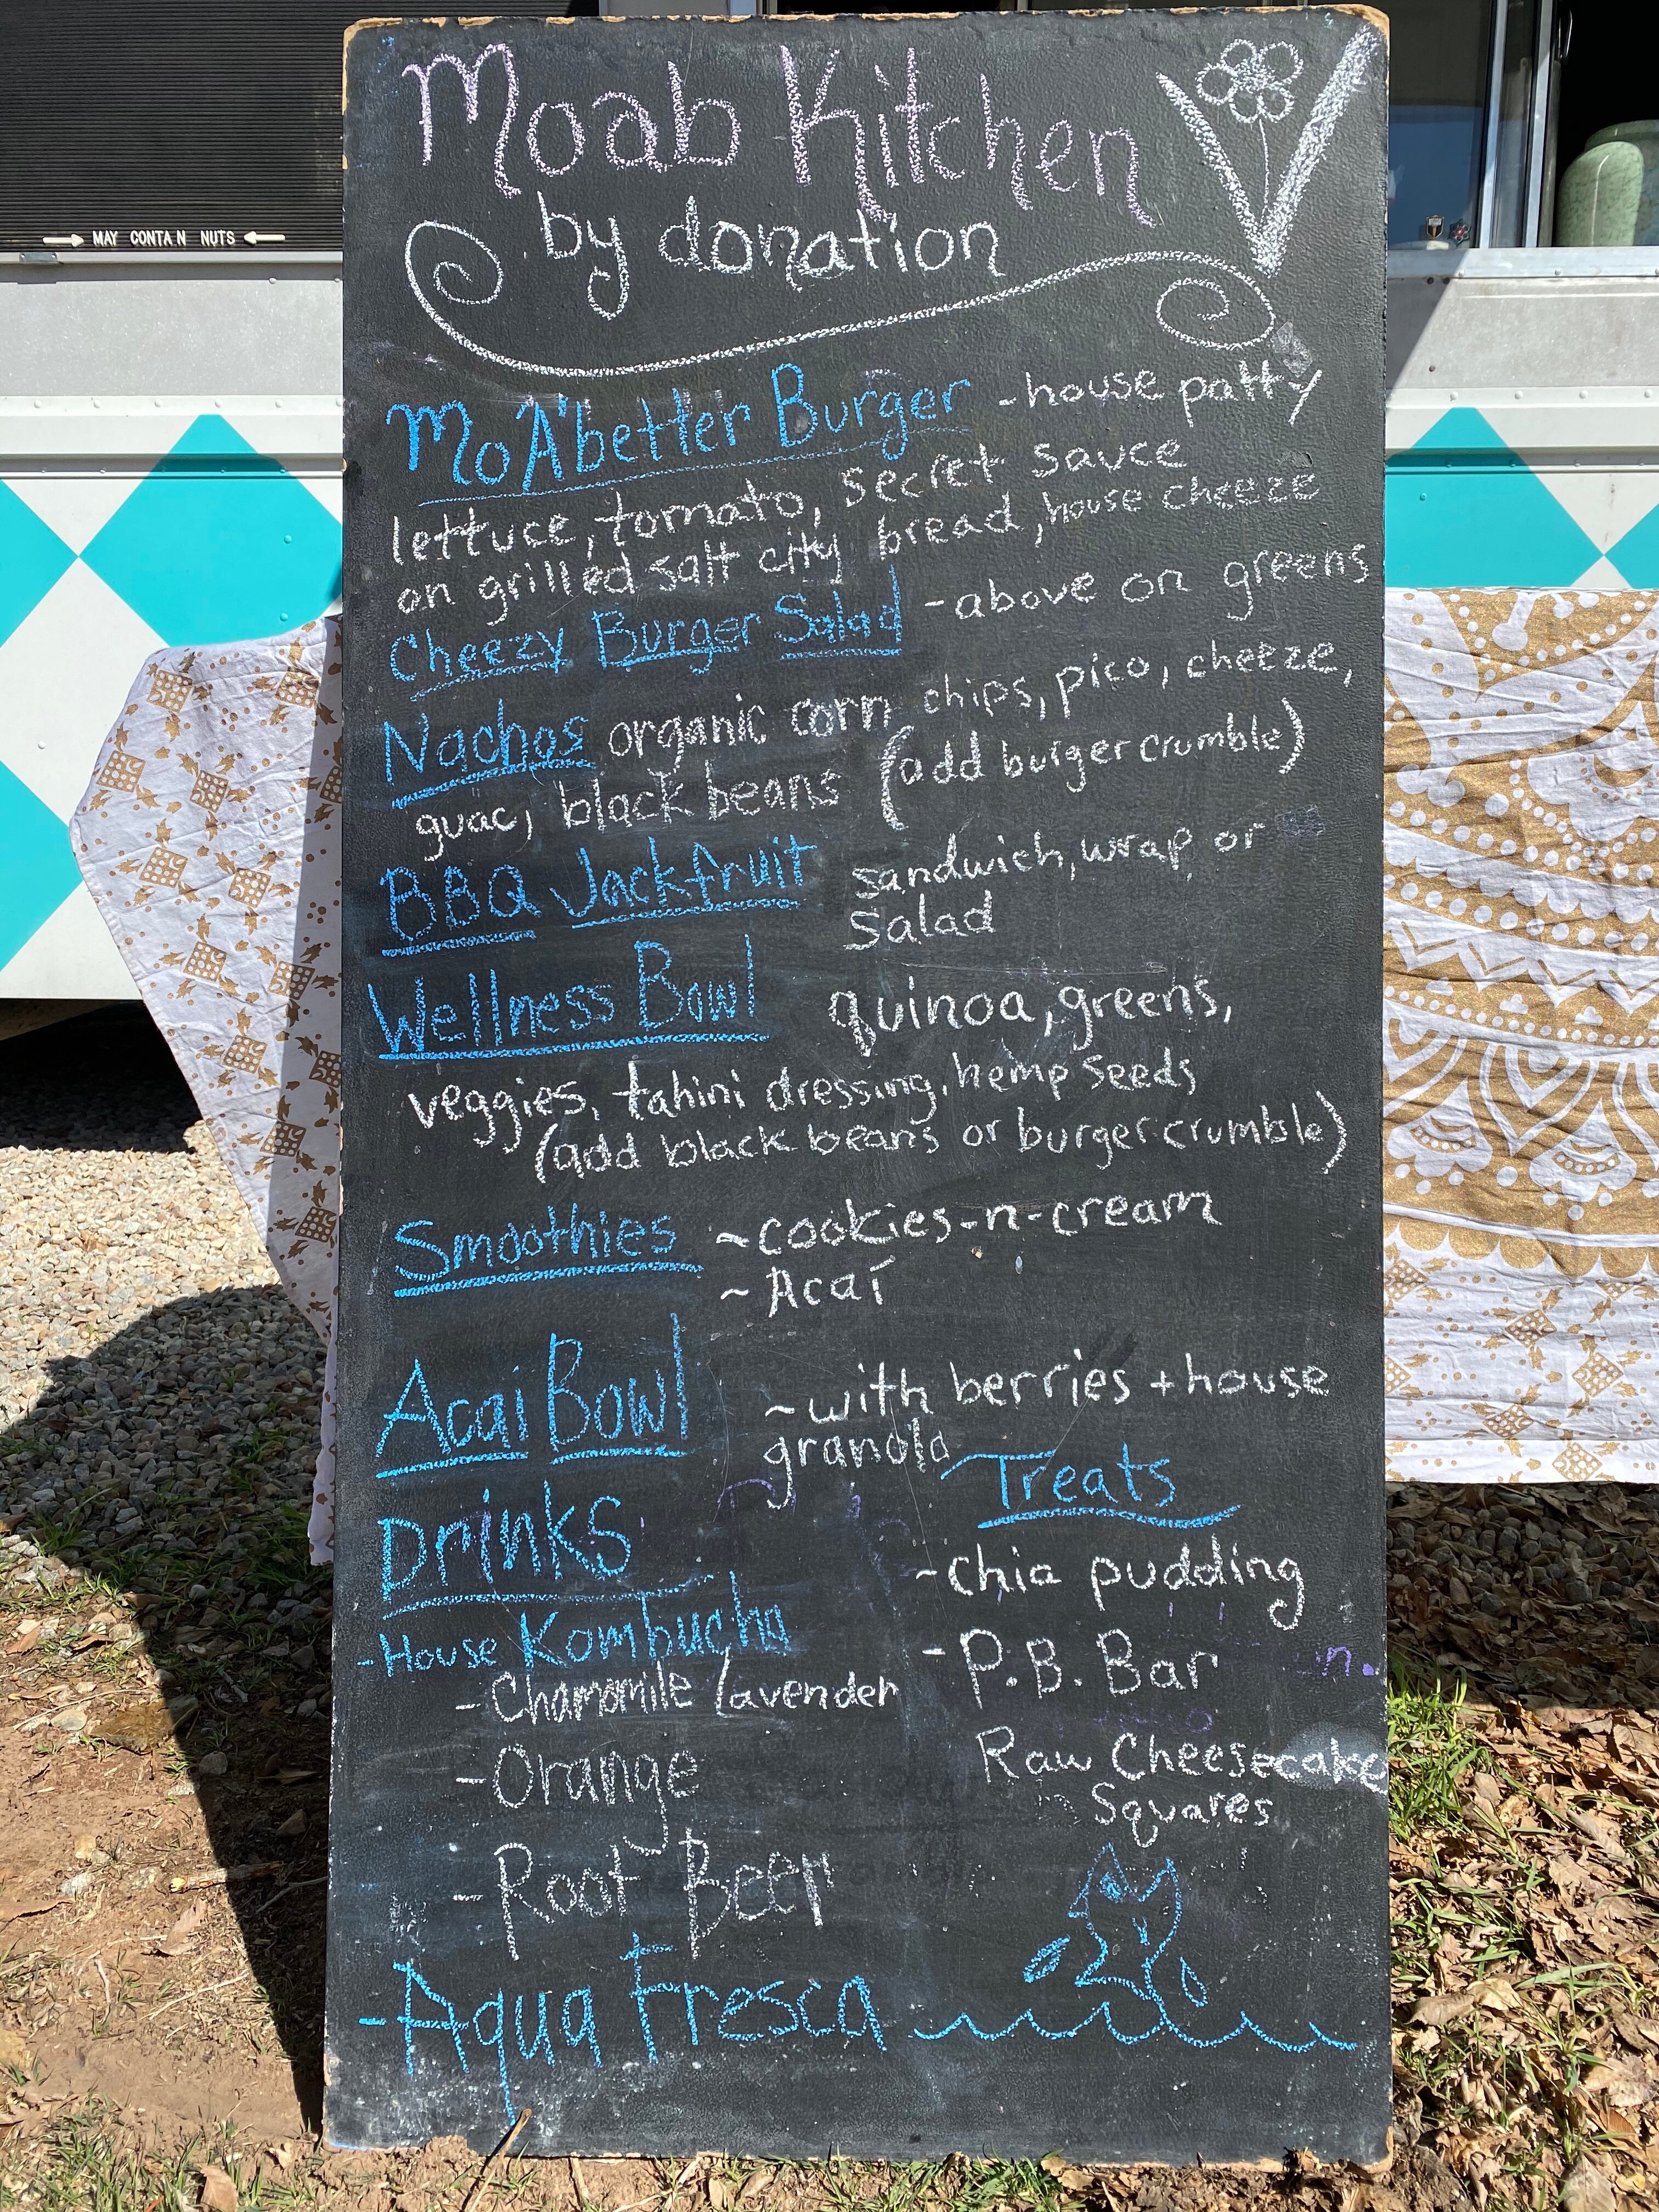 MAY CONTA N NUTS
Moab Kitchen
by donation
MoA'better Burger - house patty
lettuce, tomato, secret sauce
on grilled salt city bread, house cheeze
Cheezy Burger Salad - above on greens
Nachos organic corn chips, pico, cheeze,
guac, black beans (add burger crumble)
BBQ Jackfruit sandwich, wrap or
Salad
Wellness Bowl quinoa, greens,
veggies, tahini dressing, hemp seeds
(add black beans or burger crumble)
Smoothies ~cookies-n-cream
~ Acai
Acai Bowl ~with berries + house
granola
Treats
~chia pudding
- P.B. Bar
Raw Cheesecake
Squares
Drinks
- House Kombucha
- Chamomile Lavender
- Orange
- Root Beer
- Aqua Fresca